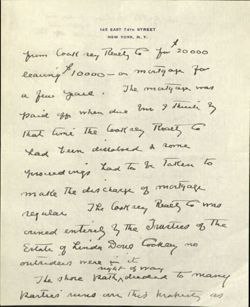 145 EAST 74TH STREET
NEW YORK, N.Y.
from Cooksey Realty Co for $20000
leaving $10000 - on mortgage for
a few years. The mortgage was
paid off when due but I think by
that time the Cooksey Realty Co
had been dissolved & some
proceedings had to be taken to
make the discharge of mortgage
regular. The Cooksey Realty Co was
owned entirely by the Trustees of the
Estate of Linda Dows Cooksey no
outsiders were in it
right of way
The shore path, deeded to many
parties runs over this property as